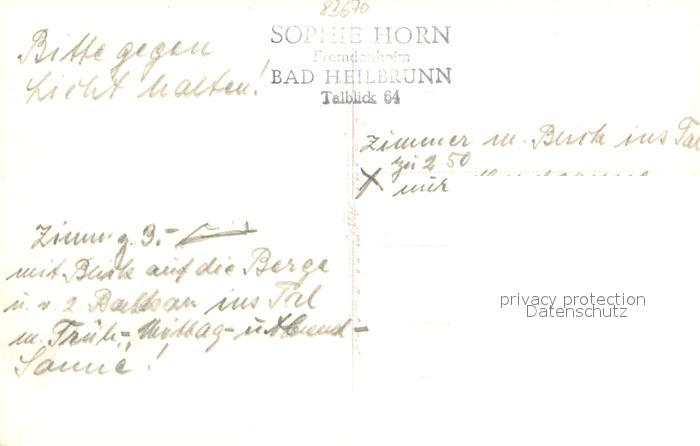 82670
Bitte gegen
Licht halten!
SOPHIE HORN
Fremdenheim
BAD HEILBRUNN
Talblick 64
Zimmer m. Blick ins Tal
zu 2 50
X nur
Zimm z. 3.-
mit Blick auf die Berge
u. v. 2 Balkon ins Tal
m. Früh-, Mittag- u. Abend-
Sonne!
privacy protection
Datenschutz